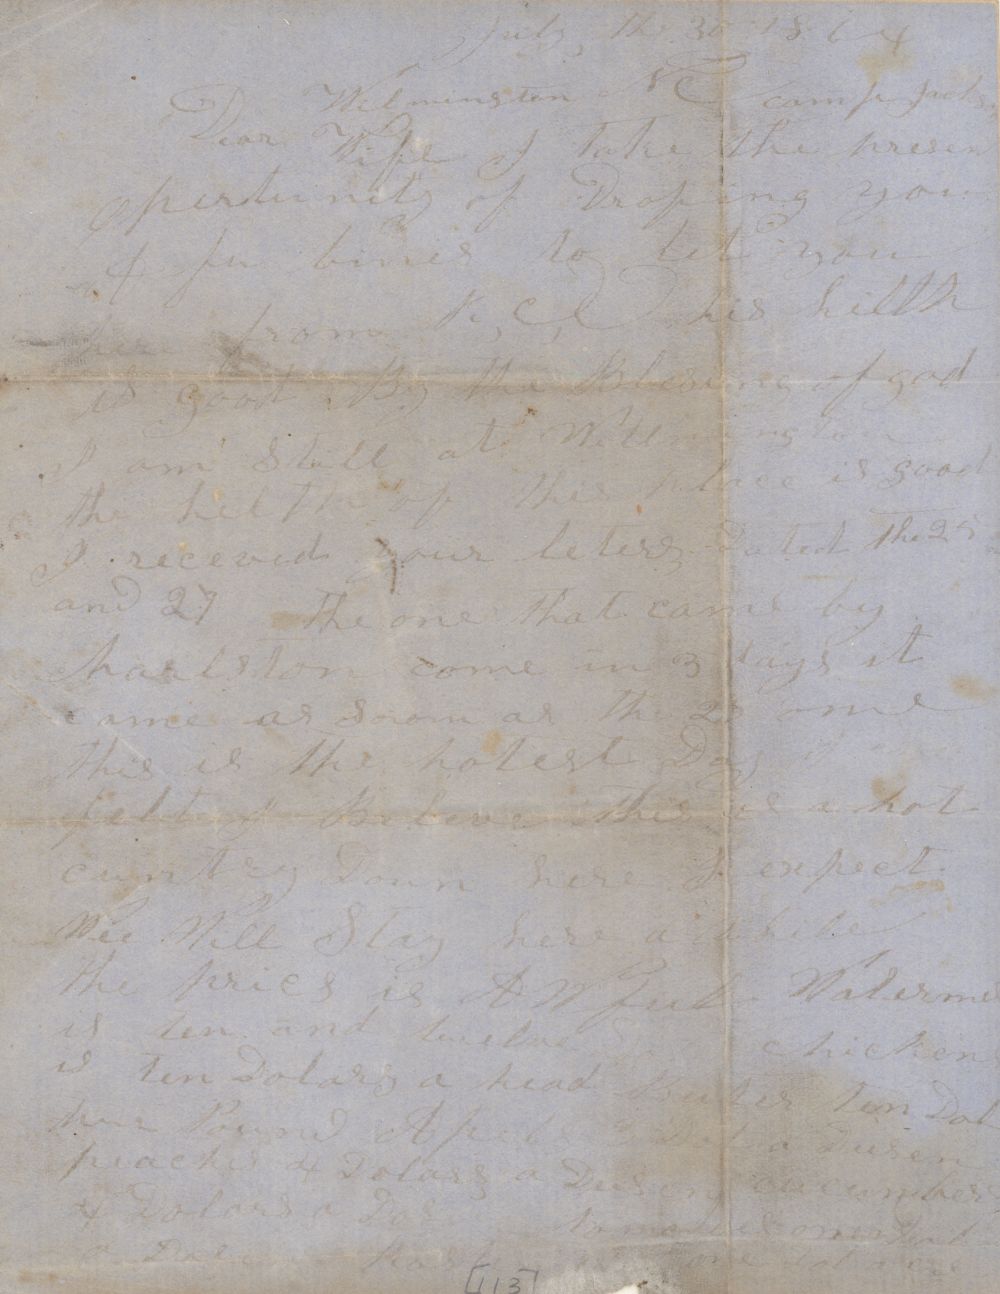 July the 30 1864
Wilmington NC camp Jacks
Dear Wife I take the presen
opertunity of Droping you
A fu lines to let you
here from R, C, C, his hilth
is good By the Blessing of god
I am still at Willmington
the hilth of this place is good
I receved your leters Dated the 25
and 27 the one that came by
Charlston come in 3 days it
came as soom as the 2 one
this is the hotest Day I ever
felt I Beleve this is a hot
cuntry Down here I expect
Wee Will Stay here a While
the prics is A W ful Waterme
is ten and twelve chicken
is ten Dolars a head Buter ten Dol
Pound Apels 3 Dol a Dusen
peaches 4 Dolars a Dusen cucumbers
4 Dolars a Dos
a Dosen
[113]